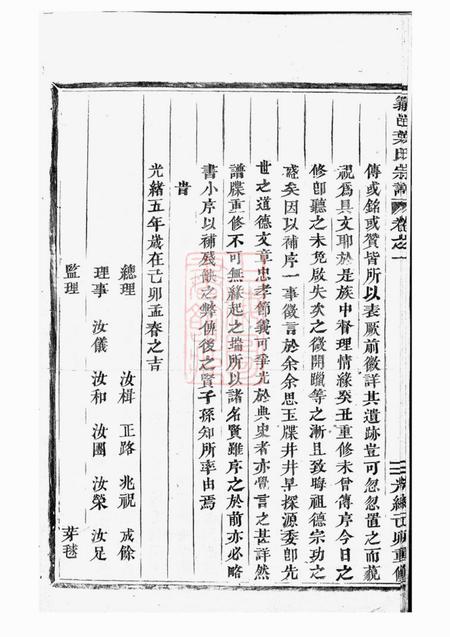 葉氏宗譜 卷之一
三 光緒己卯重修
傳或銘或贊皆所以表厥前徽詳其遺跡豈可忽忽置之而藐
視爲具文耶於是族中督理情緣癸丑重修未曾傳序今日之
修卽聽之未免啟失次之微開躐等之漸且致晦祖德宗功之
盛矣因以補序一事徵言於余余思玉牒井井早探源委卽先
世之道德文章忠孝節義可爭光於典史者亦嘗言之甚詳然
譜牒重修不可無緣起之端所以諸名賢雖序之於前亦必略
書小序以補殘缺之弊俾後之賢子孫知所率由焉
旹
光緒五年歲在己卯孟春之吉
總理 汝楫 正路 兆祝 成餘
理事 汝儀 汝和 汝團 汝榮 汝足
監理 芽毬